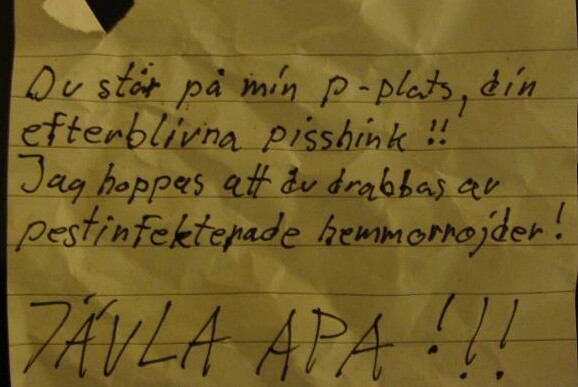 Du står på min p-plats, din
efterblivna pisshink !!
Jag hoppas att du drabbas av
pestinfekterade hemmorrojder!
JÄVLA APA !!!